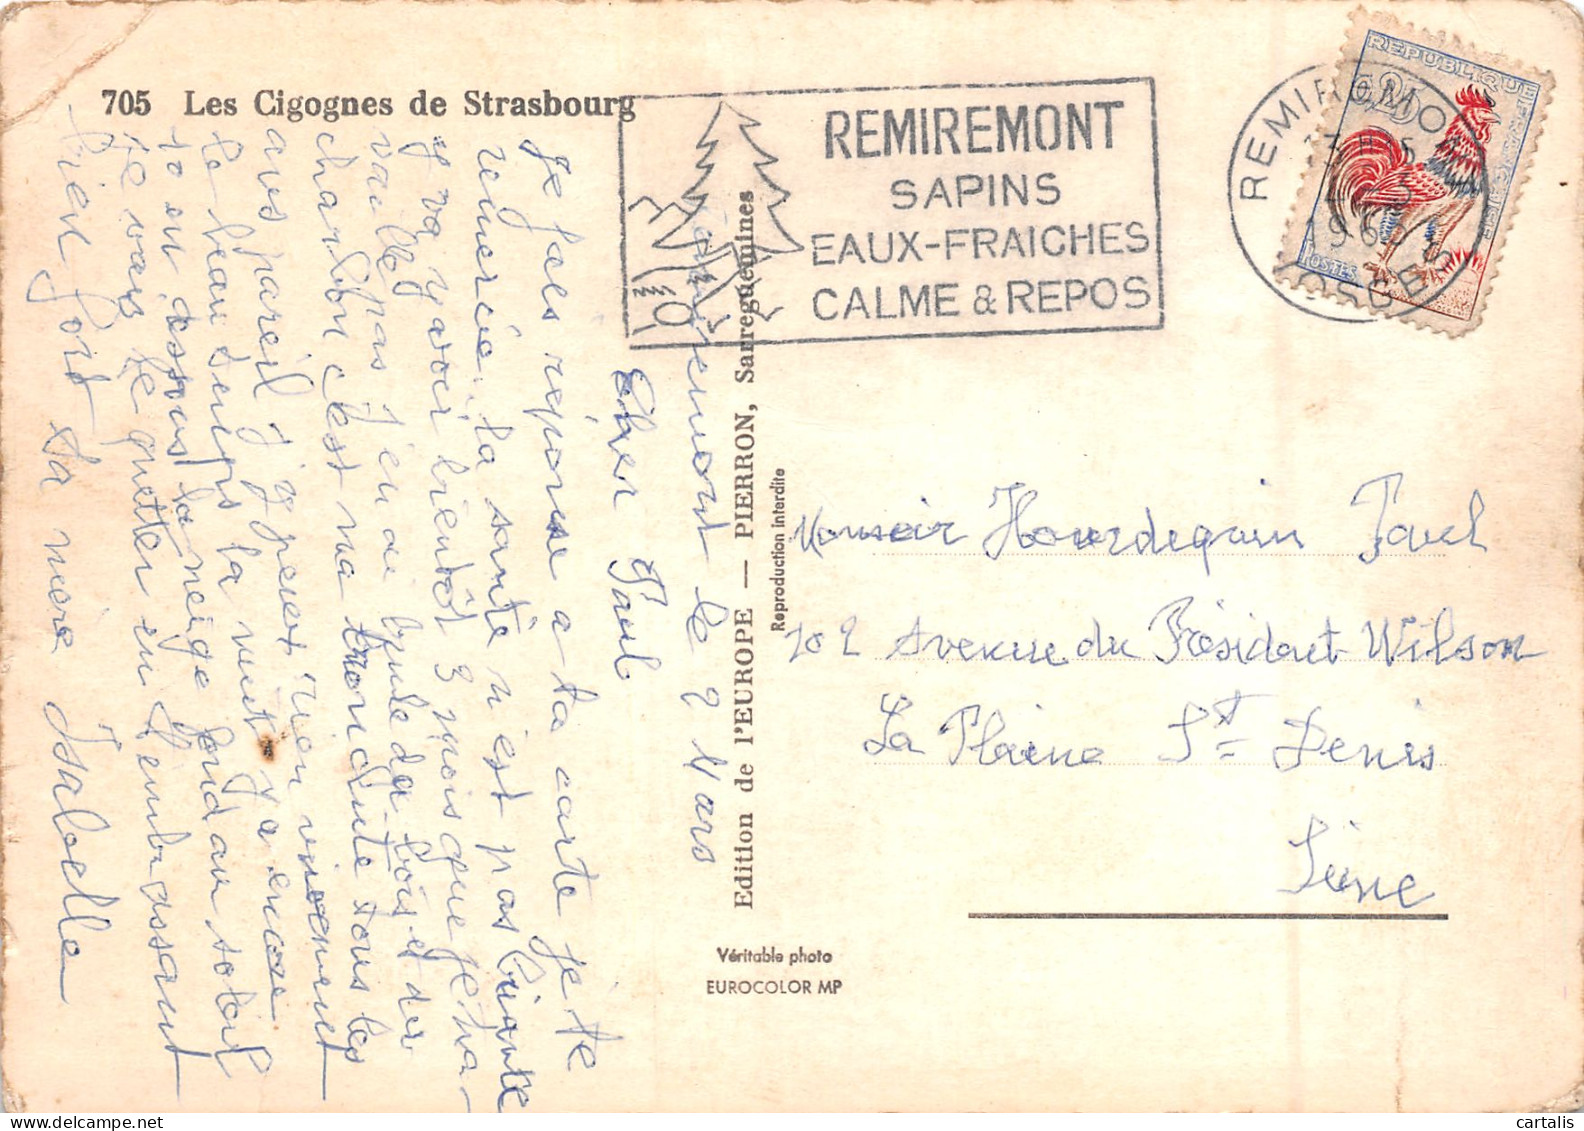 705 Les Cigognes de Strasbourg
REMIREMONT
SAPINS
EAUX-FRAICHES
CALME & REPOS
REMIREMONT
VOSGES
REPUBLIQUE FRANÇAISE
0,25
POSTES
Remiremont le 2 Mars
Cher Paul
Je fais réponse a ta carte je te
remercie. la santé n'est pas briante
y va y avoir bientôt 3 mois que je na-
vaille pas j'en ai de bois et der
charbon c'est ma tous les
avis pareil j'y peux rien
le beau temps la nuit y a encore
10 en dessous la neige fond au soleil
Je vais te quitter en t'embrassant
bien fort ta mère Isabelle
Edition de l'EUROPE — PIERRON, Sarreguemines
Reproduction interdite
Véritable photo
EUROCOLOR MP
Monsoir Hourdequin Paul
102 Avenue du Présidant Wilson
La Plaine St Denis
Seine
cartalis